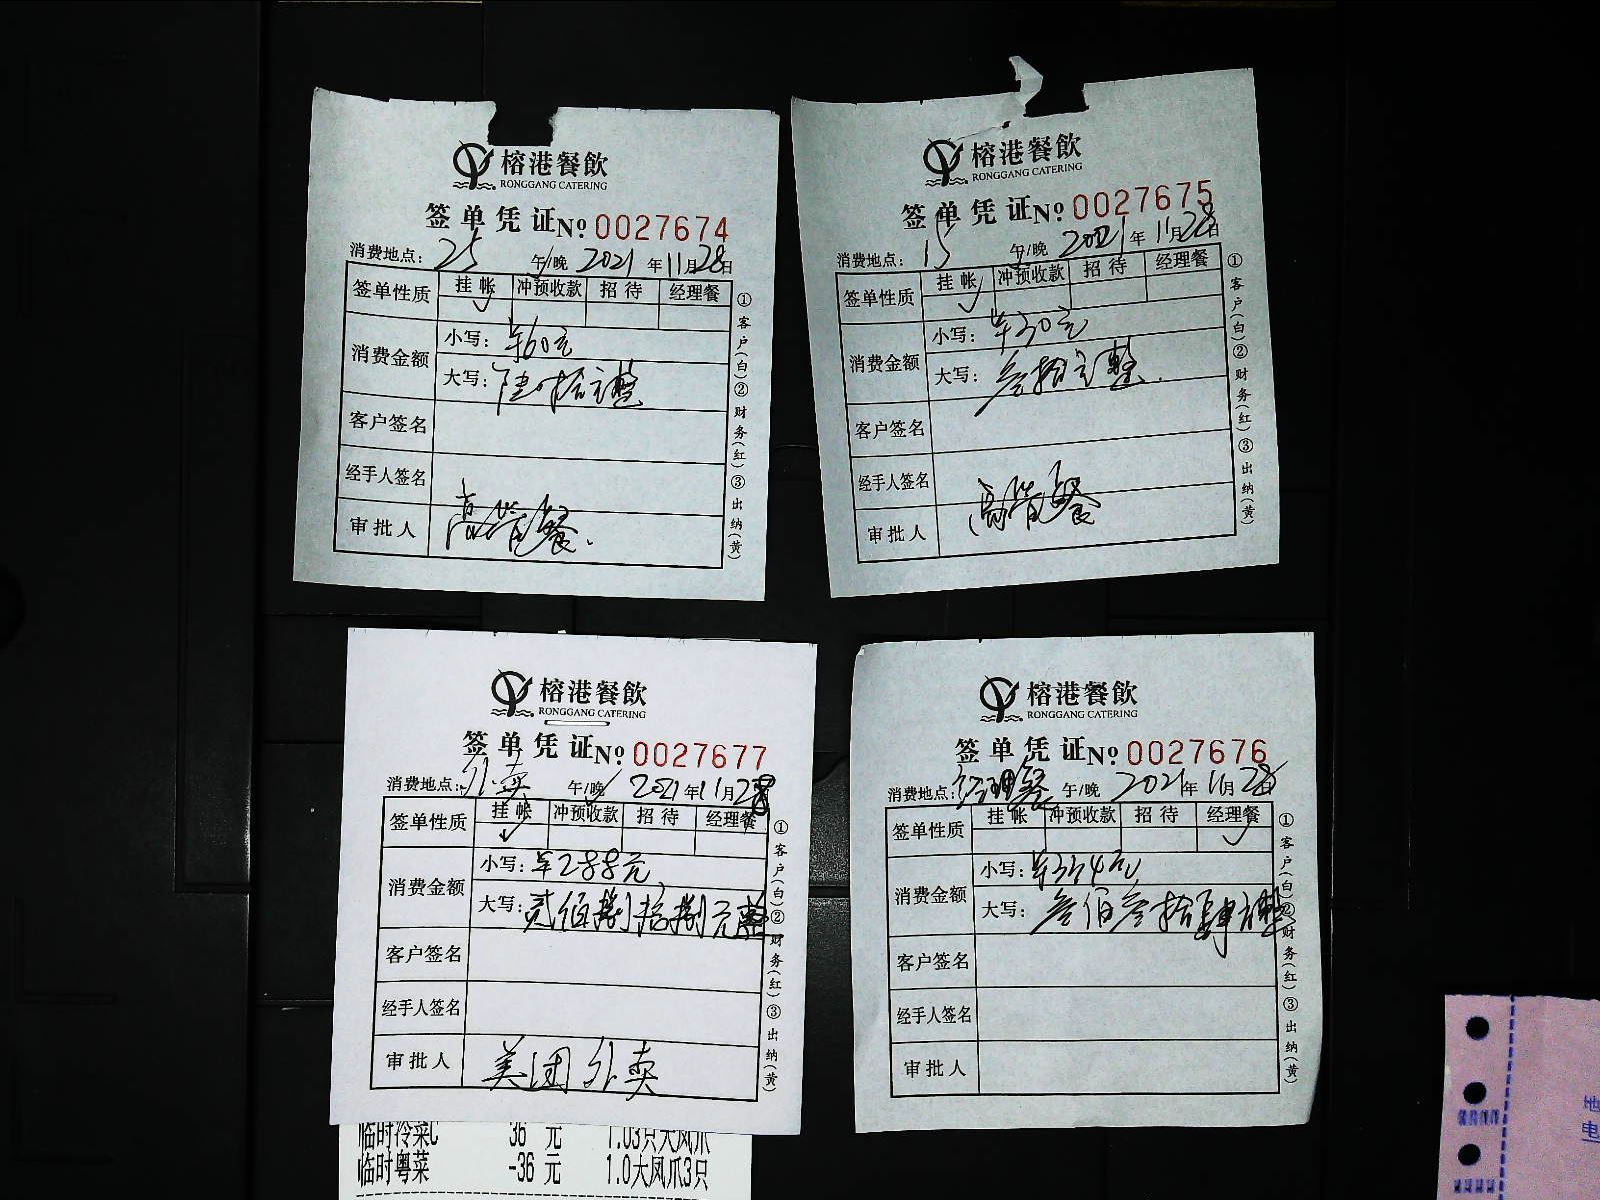 榕港餐飲
RONGGANG CATERING
签单凭证No 0027674
消费地点： 25 午/晚 2021年11月28日
签单性质 挂帐 冲预收款 招待 经理餐
✓
消费金额 小写： ¥60元
大写： 陆拾元整
客户签名
经手人签名
审批人 高管餐.
①客户(白)②财务(红)③出纳(黄)
榕港餐飲
RONGGANG CATERING
签单凭证No 0027675
消费地点： 15 午/晚 2021年11月28日
签单性质 挂帐 冲预收款 招待 经理餐
✓
消费金额 小写： ¥30元
大写： 叁拾元整.
客户签名
经手人签名
审批人 高管餐
①客户(白)②财务(红)③出纳(黄)
榕港餐飲
RONGGANG CATERING
签单凭证No 0027677
消费地点： 外卖 午/晚 2021年11月28
签单性质 挂帐 冲预收款 招待 经理餐
✓
消费金额 小写： ¥288元
大写： 贰佰捌拾捌元整
客户签名
经手人签名
审批人 美团外卖
①客户(白)②财务(红)③出纳(黄)
临时冷菜C 36 元 1.03只大凤爪
临时粤菜 -36 元 1.0大凤爪3只
榕港餐飲
RONGGANG CATERING
签单凭证No 0027676
消费地点： 经理餐 午/晚 2021年11月28日
签单性质 挂帐 冲预收款 招待 经理餐
✓
消费金额 小写： ¥334元
大写： 叁佰叁拾肆元整
客户签名
经手人签名
审批人
①客户(白)②财务(红)③出纳(黄)
地
电